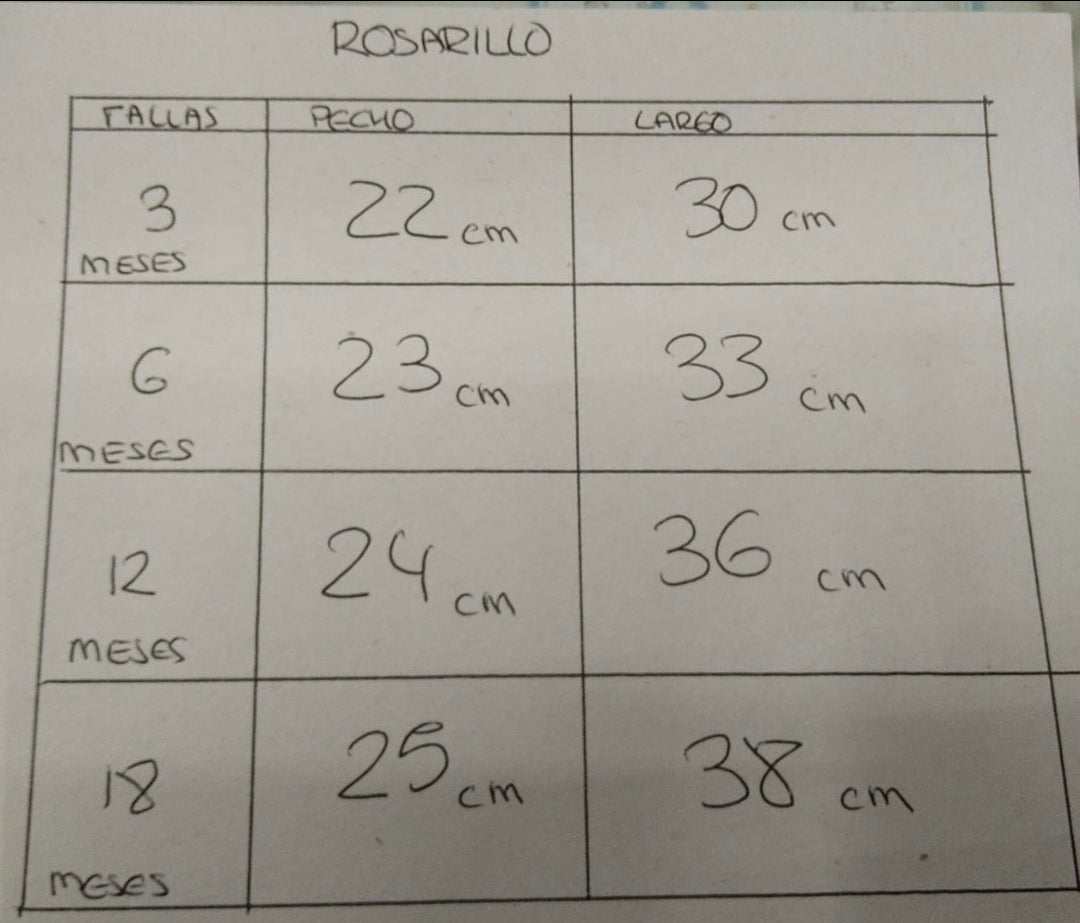 ROSARILLO
TALLAS PECHO LARGO
3 MESES 22 cm 30 cm
6 MESES 23 cm 33 cm
12 MESES 24 cm 36 cm
18 MESES 25 cm 38 cm